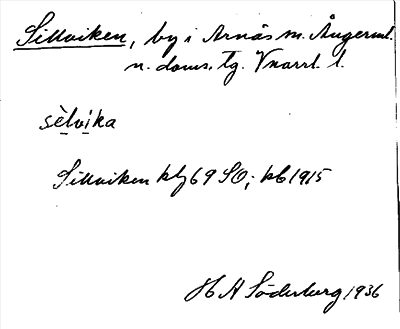 Sillviken, by i Arnäs sn. Ångerml.
n. doms. Tg. Vnarrl. l.
sèlvika
Sillviken kbl 69 SO; kb 1915
H A Söderberg 1936